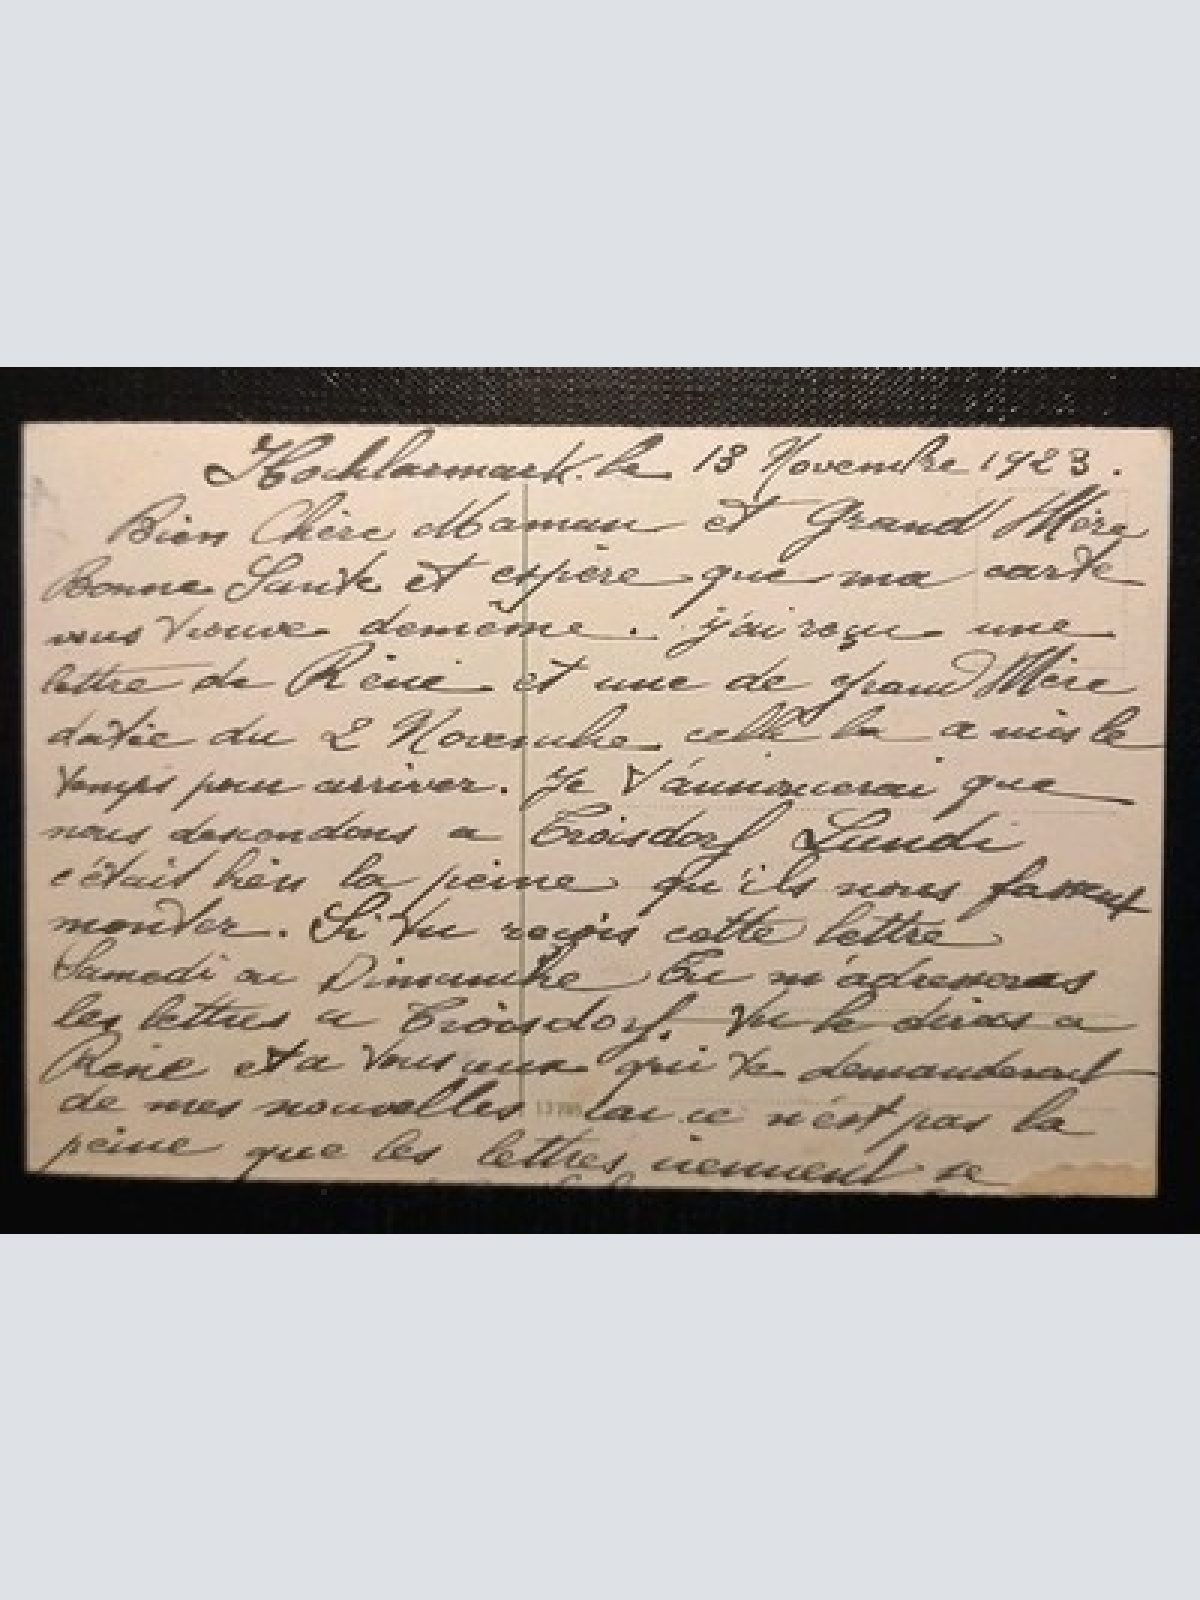 Hochlarmark. le 13 Novembre 1923.
Bien Chère Maman et Grand Mère
Bonne Santé et espère que ma carte
vous trouve demême. j'ai reçu une
lettre de Réné et une de grand Mère
datée du 2 Novembre celle la a mis le
temps pour arriver. Je t'annoncerai que
nous descendons a Troisdorf Lundi
c'était bien la peine qu'ils nous fassent
monter. Si tu reçois cette lettre
Samedi ou Dimanche Tu m'adresseras
les lettres a Troisdorf. tu le diras a
Réné et a tous ceux qui te demanderont
de mes nouvelles car ce n'est pas la
peine que les lettres viennent se